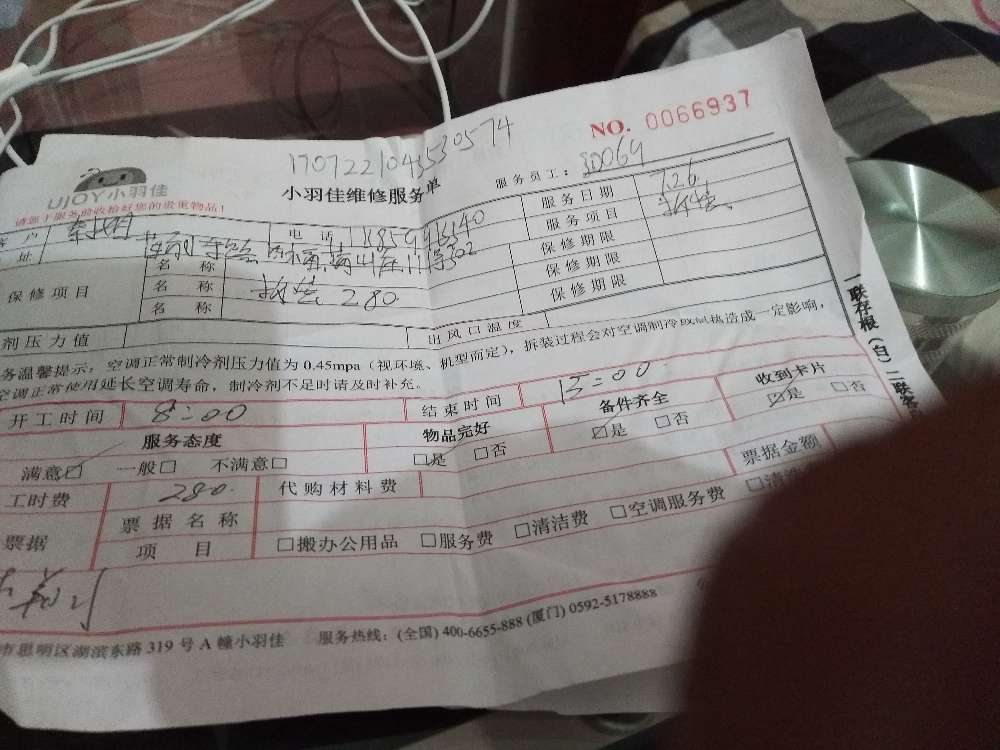 NO. 0066937
170722104530574
UJOY小羽佳
小羽佳维修服务单
服务员工：30064
请您于服务前收拾好您的贵重物品！
客户
电话
服务日期 7.26
址
服务项目
保修项目
名称
保修期限
名称 280
保修期限
名称
保修期限
剂压力值
出风口温度
务温馨提示：空调正常制冷剂压力值为 0.45mpa（视环境、机型而定），拆装过程会对空调制冷或制热造成一定影响，
空调正常使用延长空调寿命，制冷剂不足时请及时补充。
开工时间 8:00
结束时间 15:00
服务态度
物品完好
备件齐全
收到卡片
满意☑ 一般□ 不满意□
☑是 □否
☑是 □否
☑是 □否
工时费 280.
代购材料费
票据金额
票据
票据名称
项目
□搬办公用品 □服务费 □清洁费 □空调服务费 □清洗
市思明区湖滨东路 319 号 A 幢小羽佳 服务热线：(全国) 400-6655-888 (厦门) 0592-5178888
一联存根（白）二联客